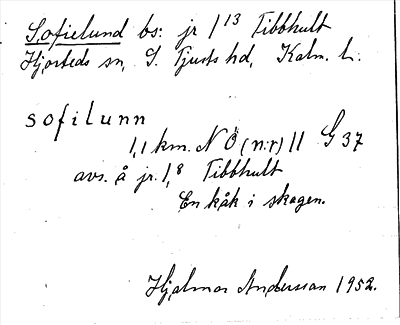 Sofielund bs: jr 1 13 Tibbhult
Hjorteds sn, S. Tjusts hd, Kalm. L.
sofilunn
1,1 km. NÖ (n.r) 11 G 37
avs. å jr. 1,8 Tibbhult
En kåk i skogen.
Hjalmar Andersson 1952.